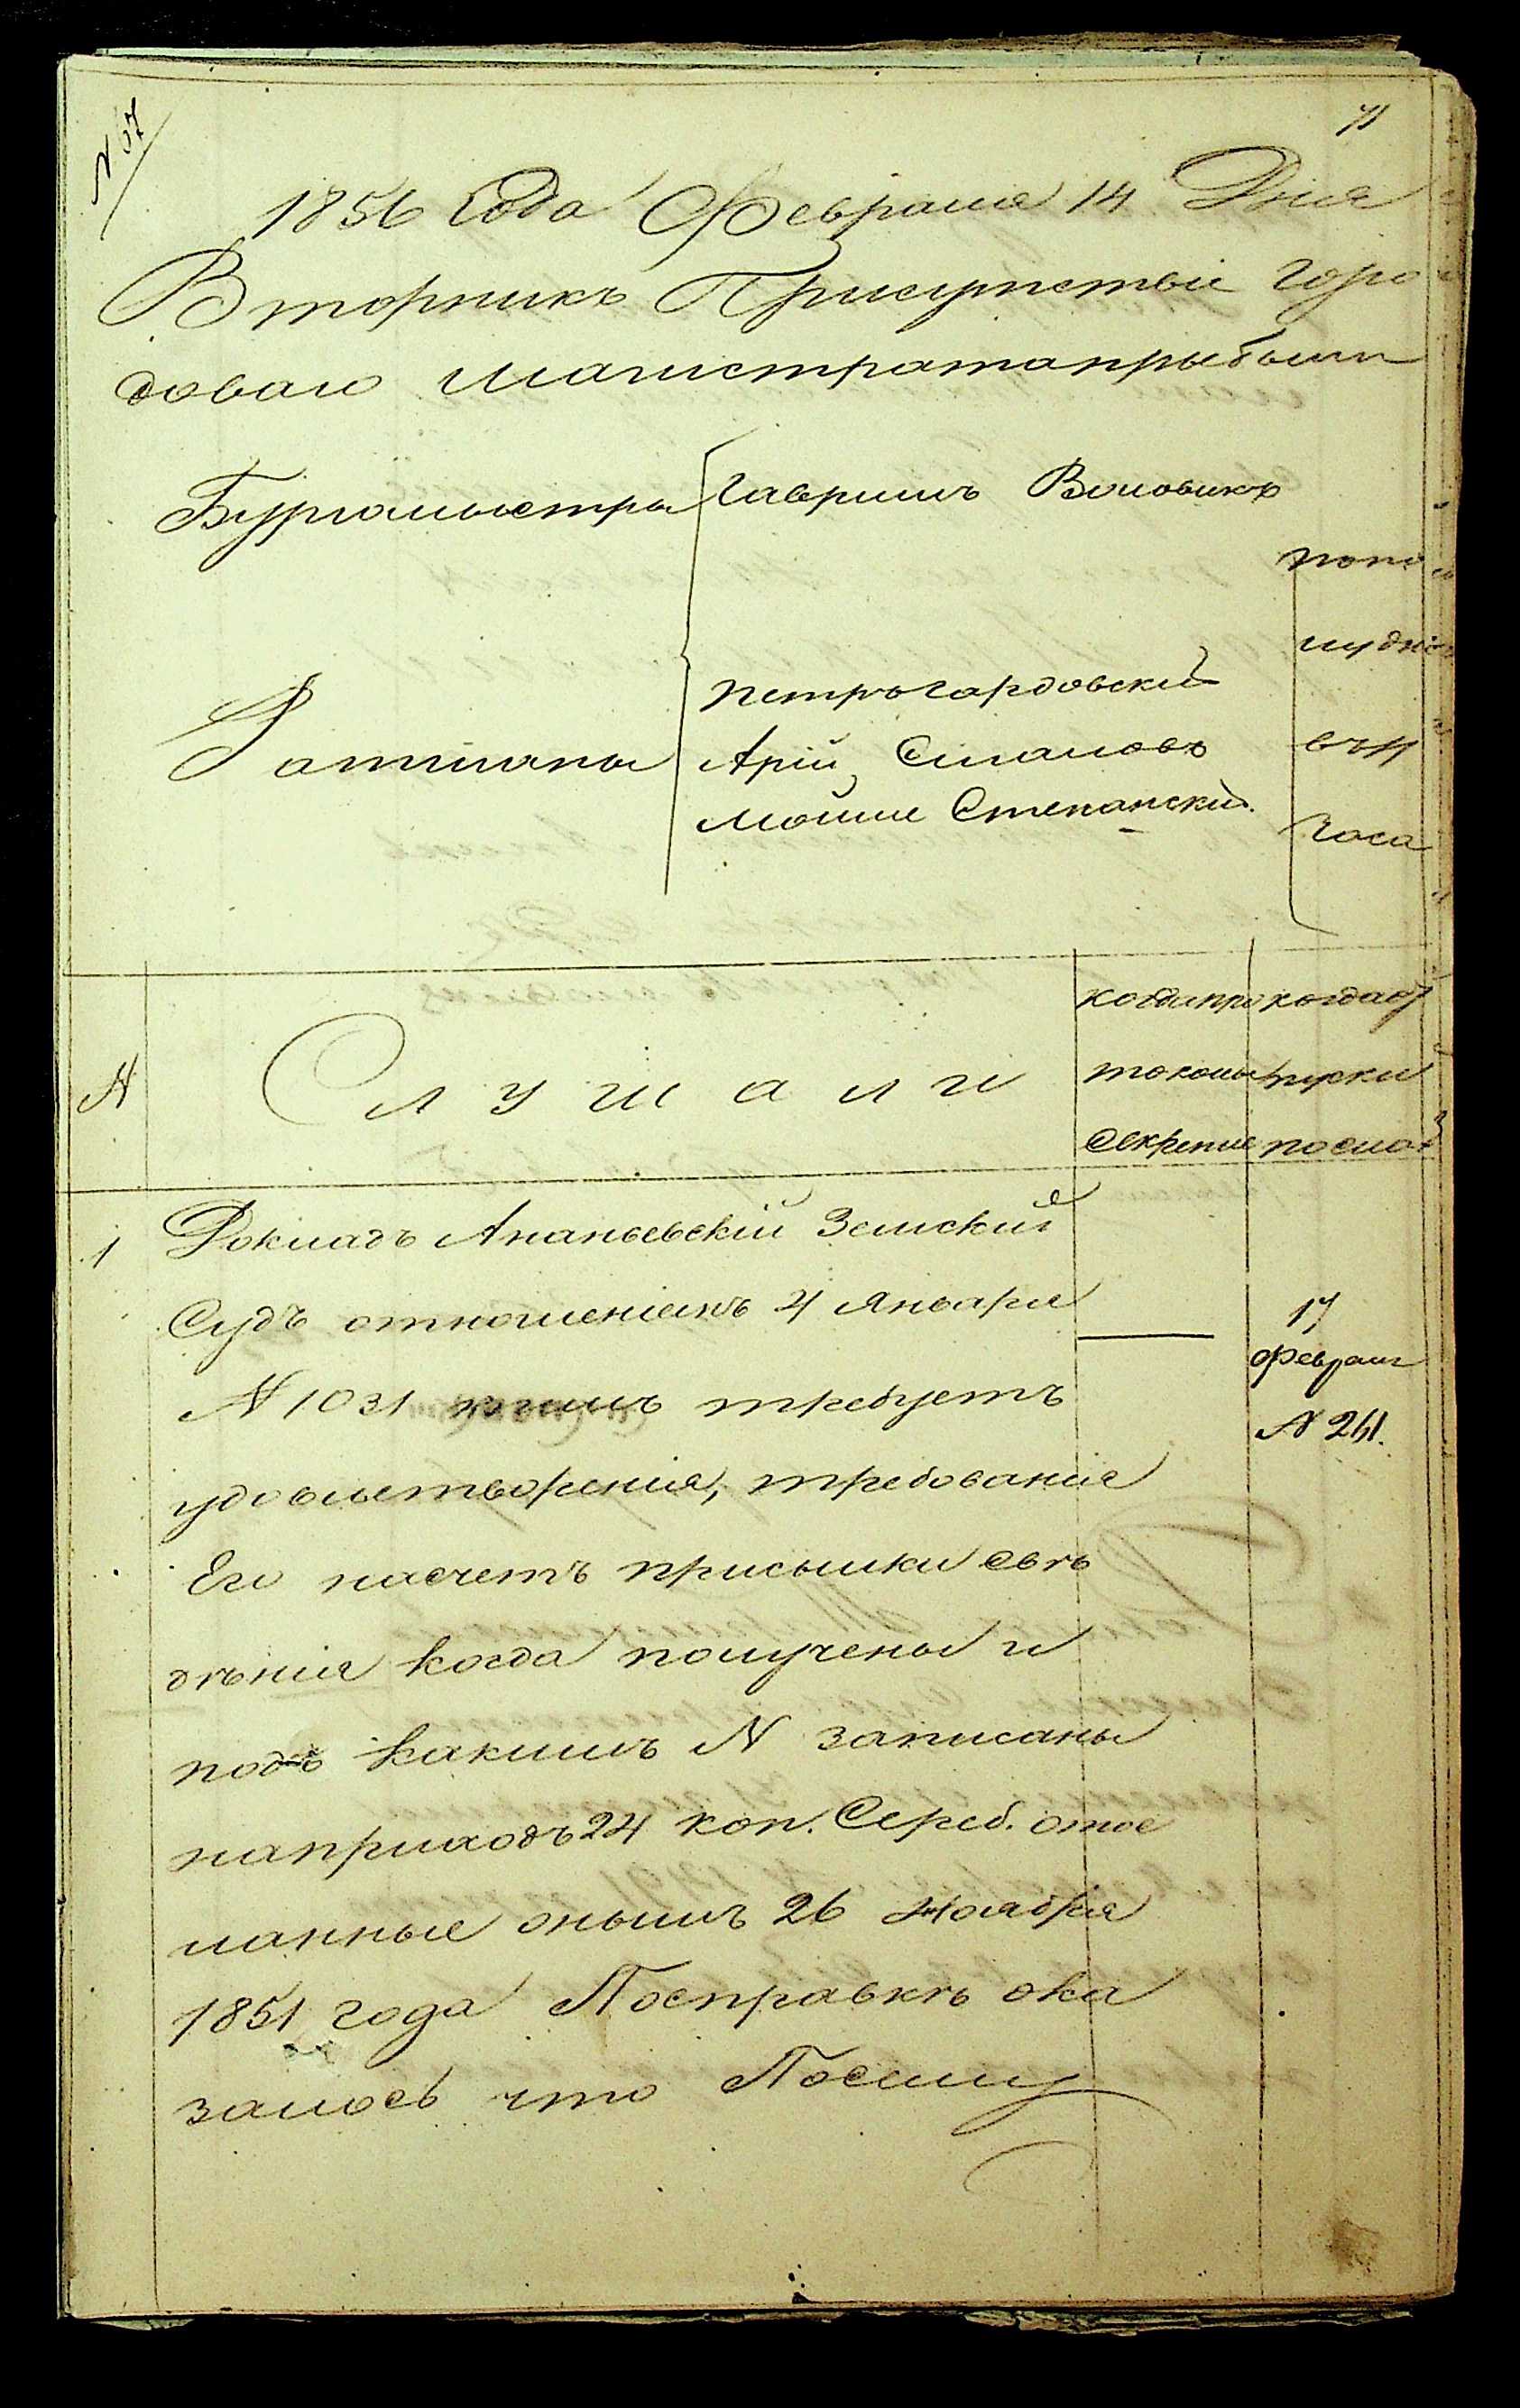 N 37
71
1856 Года Февраля 14 Дня
Вторникъ Присутствіе Горо
доваго Магистрата прыбыли
Бургомыстры Гаврилъ Воловикъ
Ратманы
Петръ Гардовский
Арій Сиамовъ
Мошие Степанский.
попо
лудни
въ 11
Часа
N
Слушали
когда про
токолы
Секрет
когда от
пуски
послат
1
Докладъ Ананьевскій Земский
Судъ отношеніемъ 4 Января
N 1031 требуетъ
удовлетворенія, требованія
Его насчетъ присылки свѣ
дѣнія когда получены и
подъ какимъ N записаны
наприходъ 24 коп. Сереб. отос
ланные онымъ 26 Ноября
1851 года Посправкѣ ока
залось что Посему
17
Февраля
N 261.